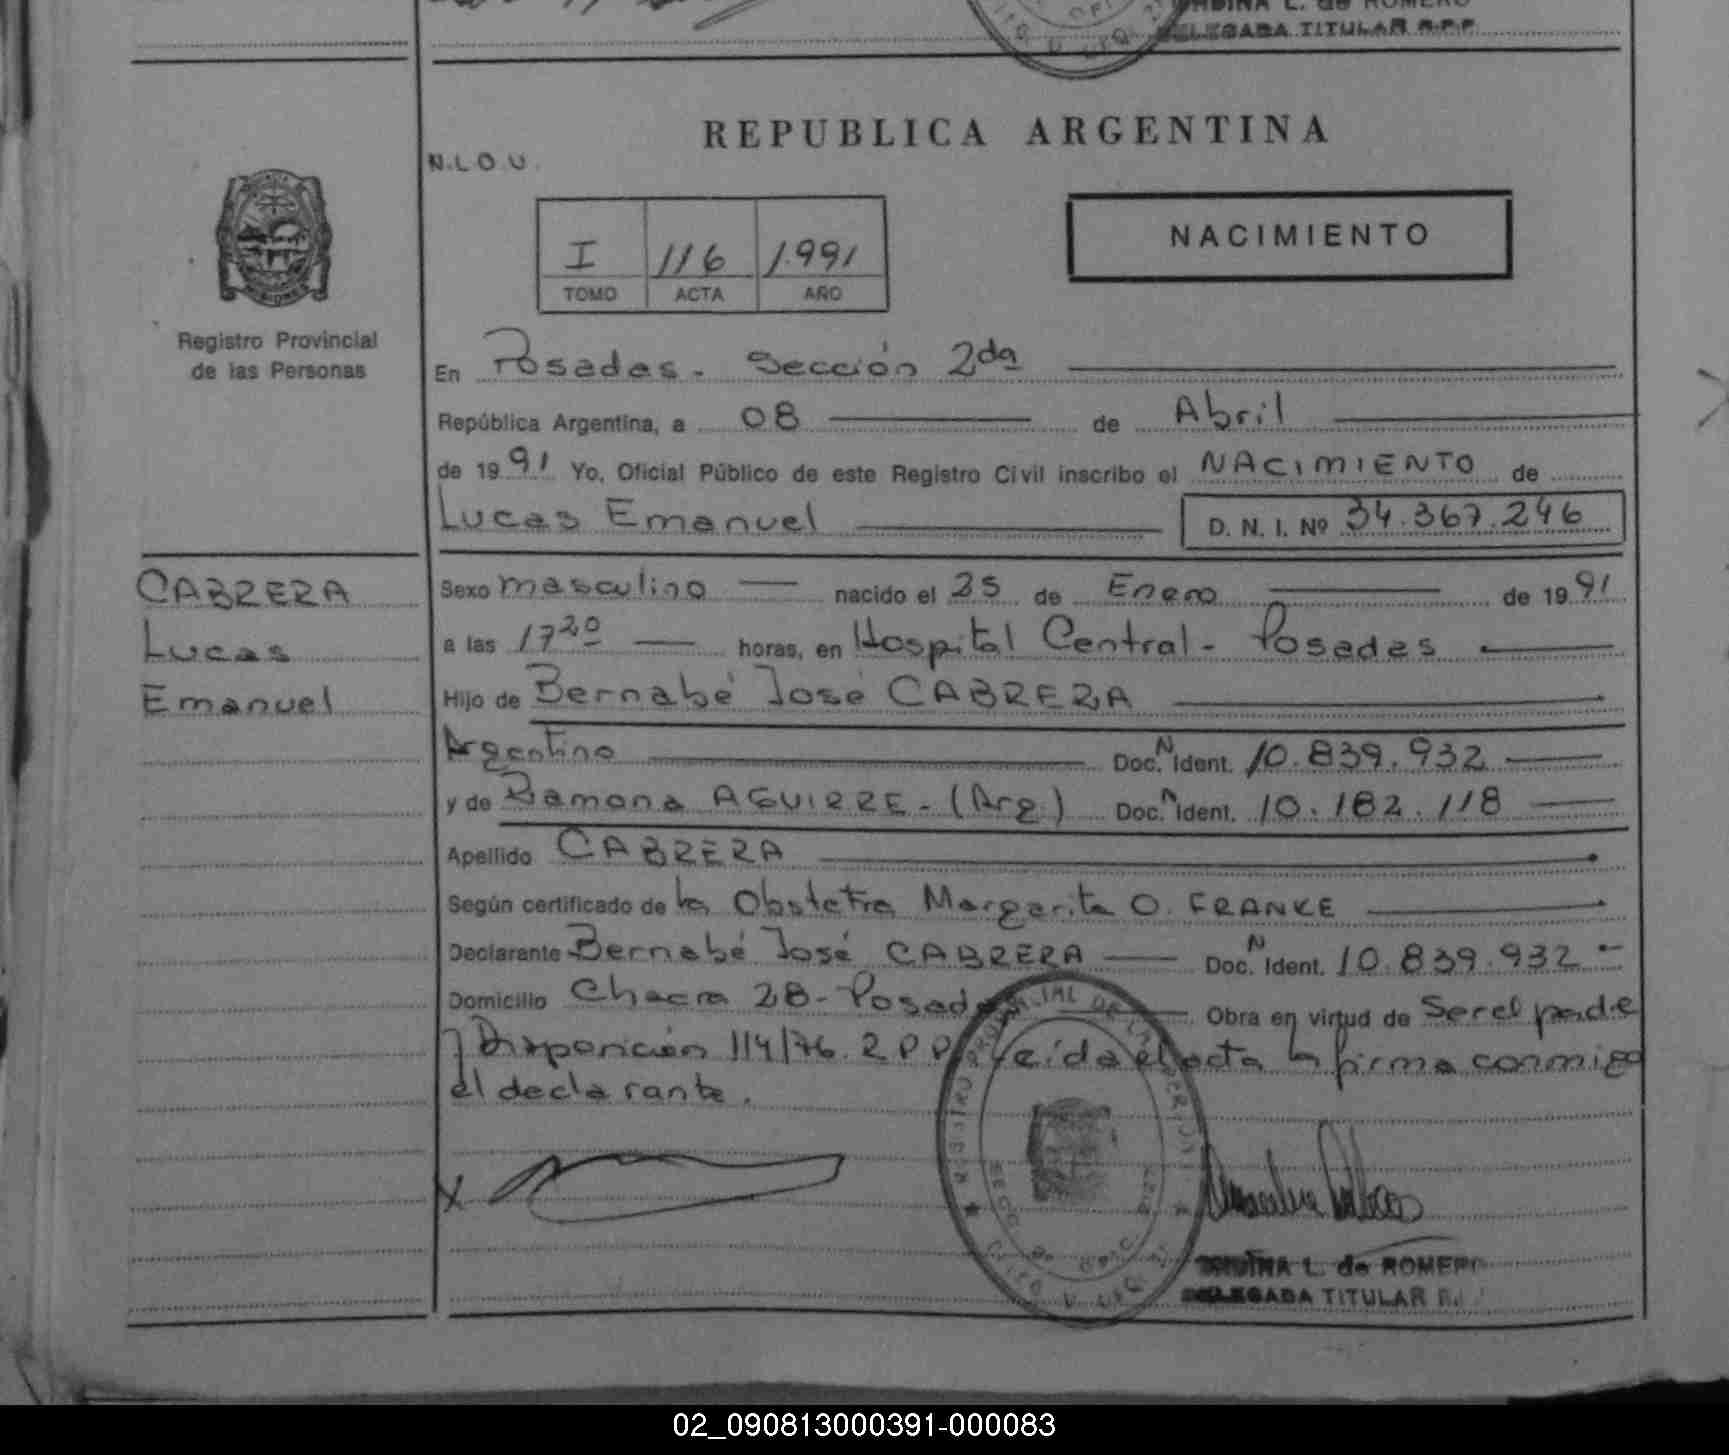 DELEGADA TITULAR R.P.P.
REPUBLICA ARGENTINA
N.L.O.U.
NACIMIENTO
I 116 1.991
TOMO ACTA AÑO
MISIONES
Registro Provincial
de las Personas
En Posadas. Sección 2da
República Argentina, a 08 de Abril
de 1991 Yo, Oficial Público de este Registro Civil inscribo el NACIMIENTO de
Lucas Emanuel D. N. I. Nº 34.367.246
CABRERA
Lucas
Emanuel
Sexo masculino nacido el 25 de Enero de 1991
a las 17 20 horas, en Hospital Central - Posadas
Hijo de Bernabé José CABRERA
Argentino Doc. N Ident. 10.839.932
y de Ramona AGUIRRE - (Arg.) Doc. N Ident. 10.182.118
Apellido CABRERA
Según certificado de la Obstetra Margarita O. FRANKE
Declarante Bernabé José CABRERA Doc. N Ident. 10.839.932
Domicilio Chacra 28 - Posadas Obra en virtud de Ser el padre
y Disposición 114/76 R P P Leída el acta la firma conmigo
el declarante.
X
L. de ROMERO
DELEGADA TITULAR
02_090813000391-000083